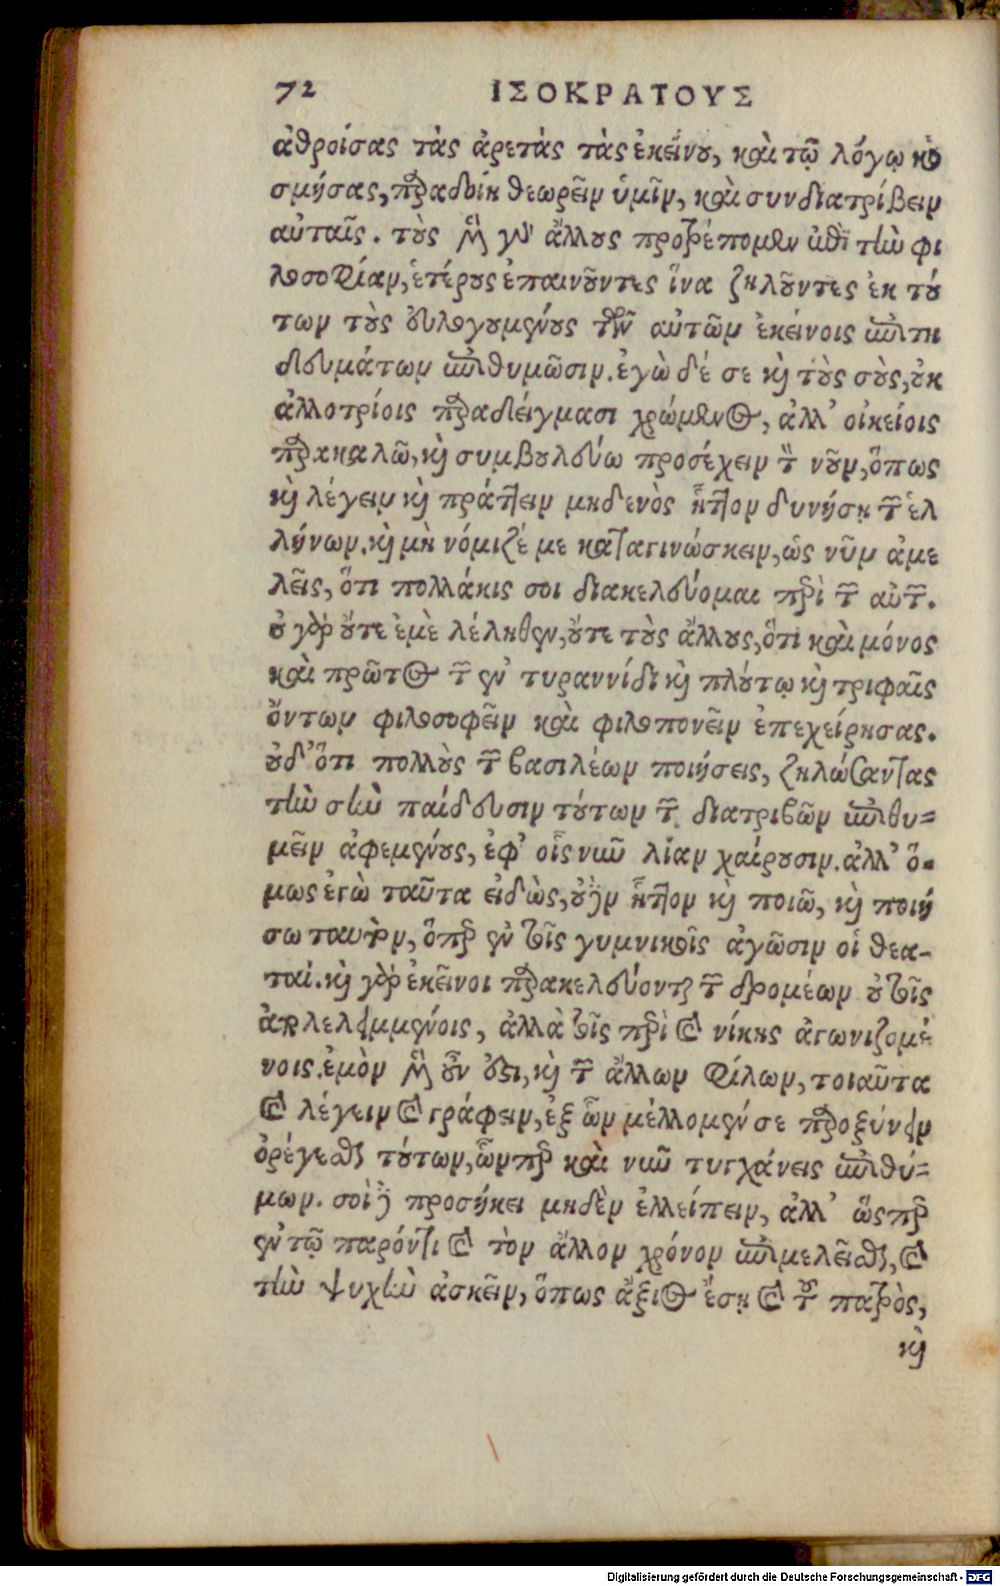 72 ΙΣΟΚΡΑΤΟΥΣ
ἀθροίσας τὰς ἀρετὰς τὰς ἐκείνου, καὶ τῷ λόγῳ κο
σμήσας, παραδοῦναι θεωρεῖν ὑμῖν, καὶ συνδιατρίβειν
αὐταῖς. τοὺς μὲν γὰρ ἄλλους προτρέπομεν ἐπὶ τὴν φι
λοσοφίαν, ἑτέρους ἐπαινοῦντες ἵνα ζηλοῦντες ἐκ τού
των τοὺς εὐλογουμένους τῶν αὐτῶν ἐκείνοις ἐπιτη
δευμάτων ἐπιθυμῶσιν. ἐγὼ δέ σε καὶ τοὺς σοὺς, οὐκ
ἀλλοτρίοις παραδείγμασι χρώμενος, ἀλλ' οἰκείοις
παρακαλῶ, καὶ συμβουλεύω προσέχειν τὸν νοῦν, ὅπως
καὶ λέγειν καὶ πράττειν μηδενὸς ἧττον δυνήσῃ τῶν ἑλ
λήνων. καὶ μὴ νόμιζέ με καταγινώσκειν, ὡς νῦν ἀμε
λεῖς, ὅτι πολλάκις σοι διακελεύομαι περὶ τῶν αὐτῶν.
οὐ γὰρ οὔτε ἐμὲ λέληθεν, οὔτε τοὺς ἄλλους, ὅτι καὶ μόνος
καὶ πρῶτος τῶν ἐν τυραννίδι καὶ πλούτῳ καὶ τριφαῖς
ὄντων φιλοσοφεῖν καὶ φιλοπονεῖν ἐπεχείρησας.
οὐδ' ὅτι πολλοὺς τῶν βασιλέων ποιήσεις, ζηλώσαντας
τὴν σὴν παίδευσιν τούτων τῶν διατριβῶν ἐπιθυ-
μεῖν ἀφεμένους, ἐφ' οἷς νῦν λίαν χαίρουσιν. ἀλλ' ὅ-
μως ἐγὼ ταῦτα εἰδὼς, οὐδὲν ἧττον καὶ ποιῶ, καὶ ποιή
σω ταυτὸν, ὅπερ ἐν τοῖς γυμνικοῖς ἀγῶσιν οἱ θεα-
ταί. καὶ γὰρ ἐκεῖνοι παρακελεύονται τῶν δρομέων οὐ τοῖς
ἀπολελειμμένοις, ἀλλὰ τοῖς περὶ τῆς νίκης ἀγωνιζομέ
νοις. ἐμὸν μὲν οὖν ἐστι, καὶ τῶν ἄλλων φίλων, τοιαῦτα
καὶ λέγειν καὶ γράφειν, ἐξ ὧν μέλλομέν σε παροξύνειν
ὀρέγεσθαι τούτων, ὧνπερ καὶ νῦν τυγχάνεις ἐπιθυ-
μων. σοὶ δὲ προσήκει μηδὲν ἐλλείπειν, ἀλλ' ὥσπερ
ἐν τῷ παρόντι καὶ τὸν ἄλλον χρόνον ἐπιμελεῖσθαι, καὶ
τὴν ψυχὴν ἀσκεῖν, ὅπως ἄξιος ἔσῃ καὶ τοῦ πατρὸς,
καὶ
Digitalisierung gefördert durch die Deutsche Forschungsgemeinschaft - DFG